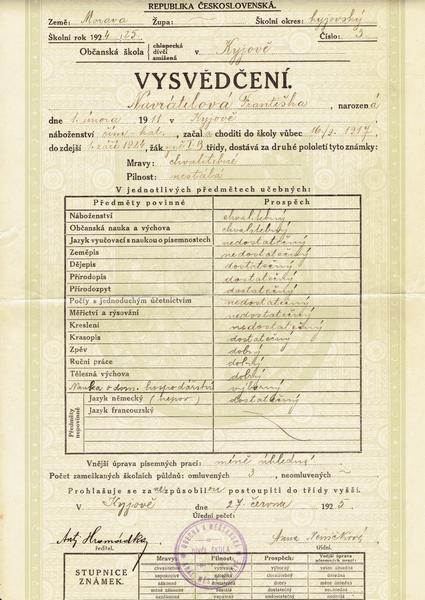 REPUBLIKA ČESKOSLOVENSKÁ.
Země: Morava Župa: — Školní okres: kyjovský
Školní rok 1924/25 Číslo: 3
Občanská škola chlapecká dívčí smíšená v Kyjově
VYSVĚDČENÍ.
Navrátilová Františka, narozená
dne 1. února 1911 v Kyjově,
náboženství řím.-kat., začala choditi do školy vůbec 16/9. 1917,
do zdejší 1. září 1924, žákyně I.B třídy, dostává za druhé pololetí tyto známky:
Mravy: chvalitebné
Pilnost: nestálá
V jednotlivých předmětech učebných:
Předměty povinné Prospěch
Náboženství chvalitebný
Občanská nauka a výchova chvalitebný
Jazyk vyučovací s naukou o písemnostech nedostatečný
Zeměpis nedostatečný
Dějepis dostatečný
Přírodopis dostatečný
Přírodozpyt dostatečný
Počty s jednoduchým účetnictvím nedostatečný
Měřictví a rýsování nedostatečný
Kreslení nedostatečný
Krasopis dostatečný
Zpěv dobrý
Ruční práce dobrý
Tělesná výchova dobrý
Nauka o dom. hospodářství výborný
Předměty nepovinné
Jazyk německý (nepov.) dostatečný
Jazyk francouzský
Vnější úprava písemných prací: méně úhledná
Počet zameškaných školních půldnů: omluvených 3, neomluvených —
Prohlašuje se za nezpůsobilou postoupiti do třídy vyšší.
V Kyjově dne 27. června 1925
Úřední pečeť:
Ant. Hromádka, Anna Němečková
ředitel. třídní.
STUPNICE ZNÁMEK.
Mravy: Pilnost: Prospěch: Vnější úprava písemných prací: